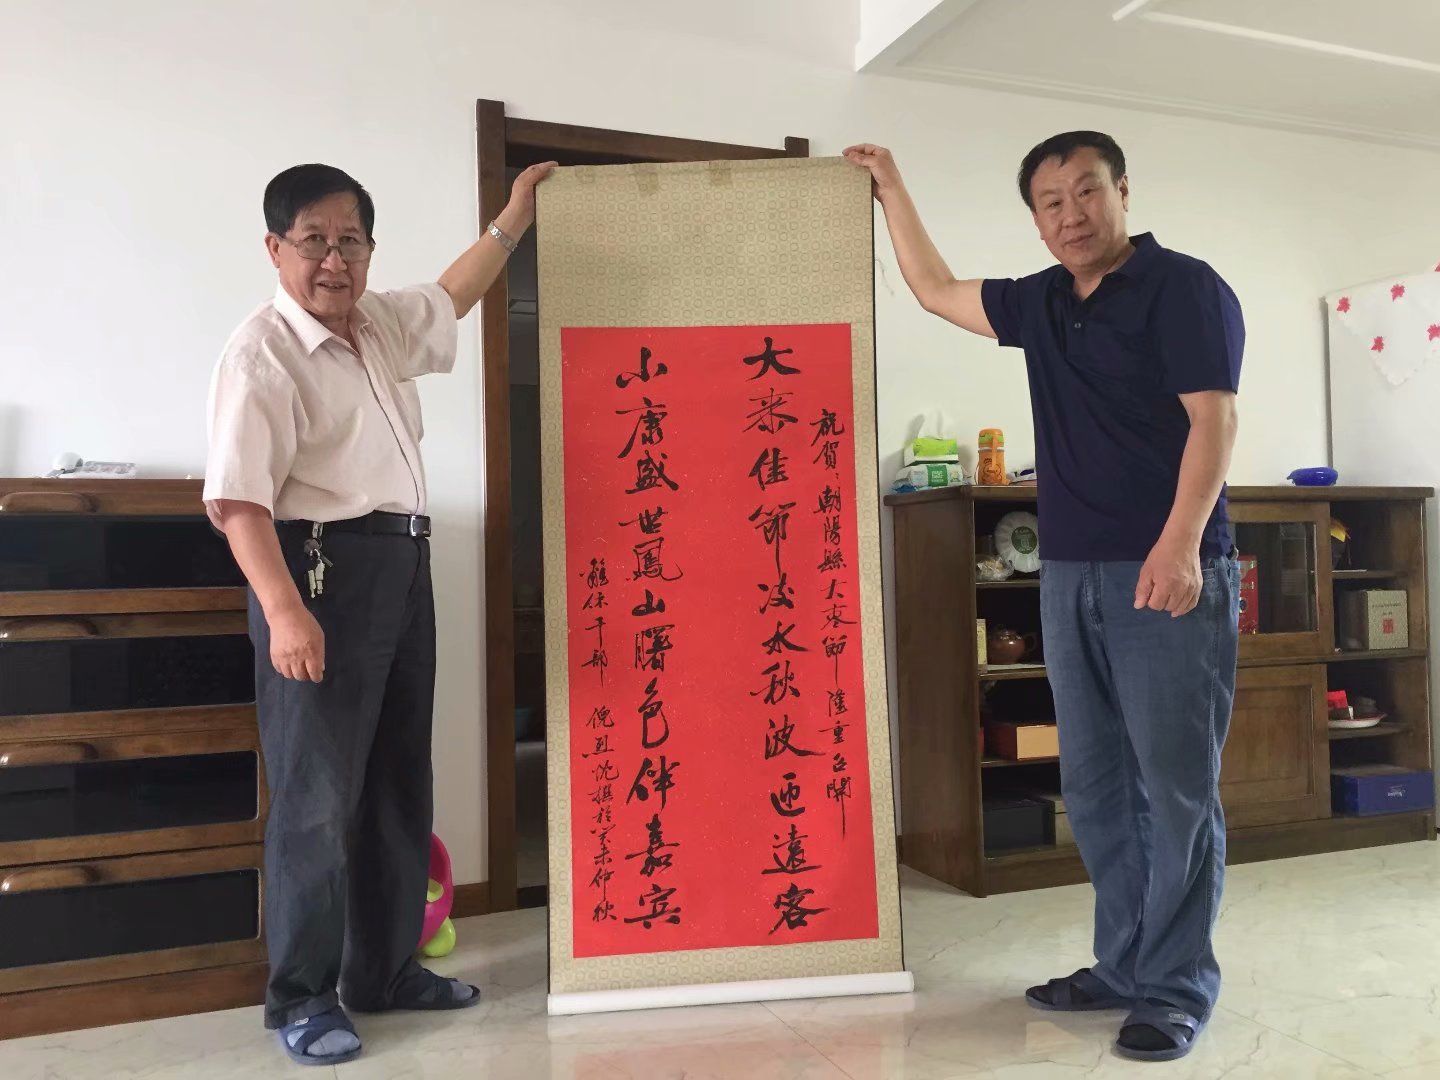 祝賀：朝陽縣大棗節隆重召開
大棗佳節凌水秋波迎遠客
小康盛世鳳山曙色伴嘉宾
離休干部 倪
仲秋